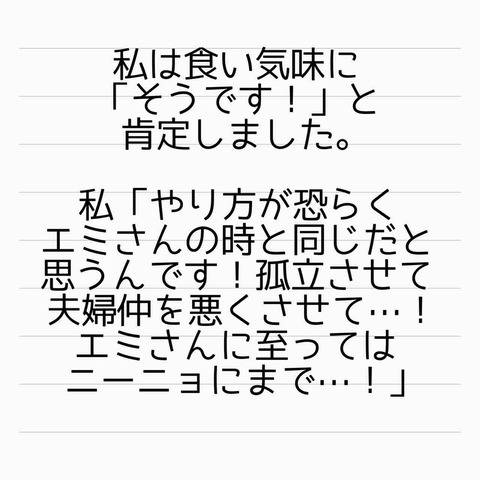 私は食い気味に
「そうです！」と
肯定しました。
私「やり方が恐らく
エミさんの時と同じだと
思うんです！孤立させて
夫婦仲を悪くさせて…！
エミさんに至っては
ニーニョにまで…！」